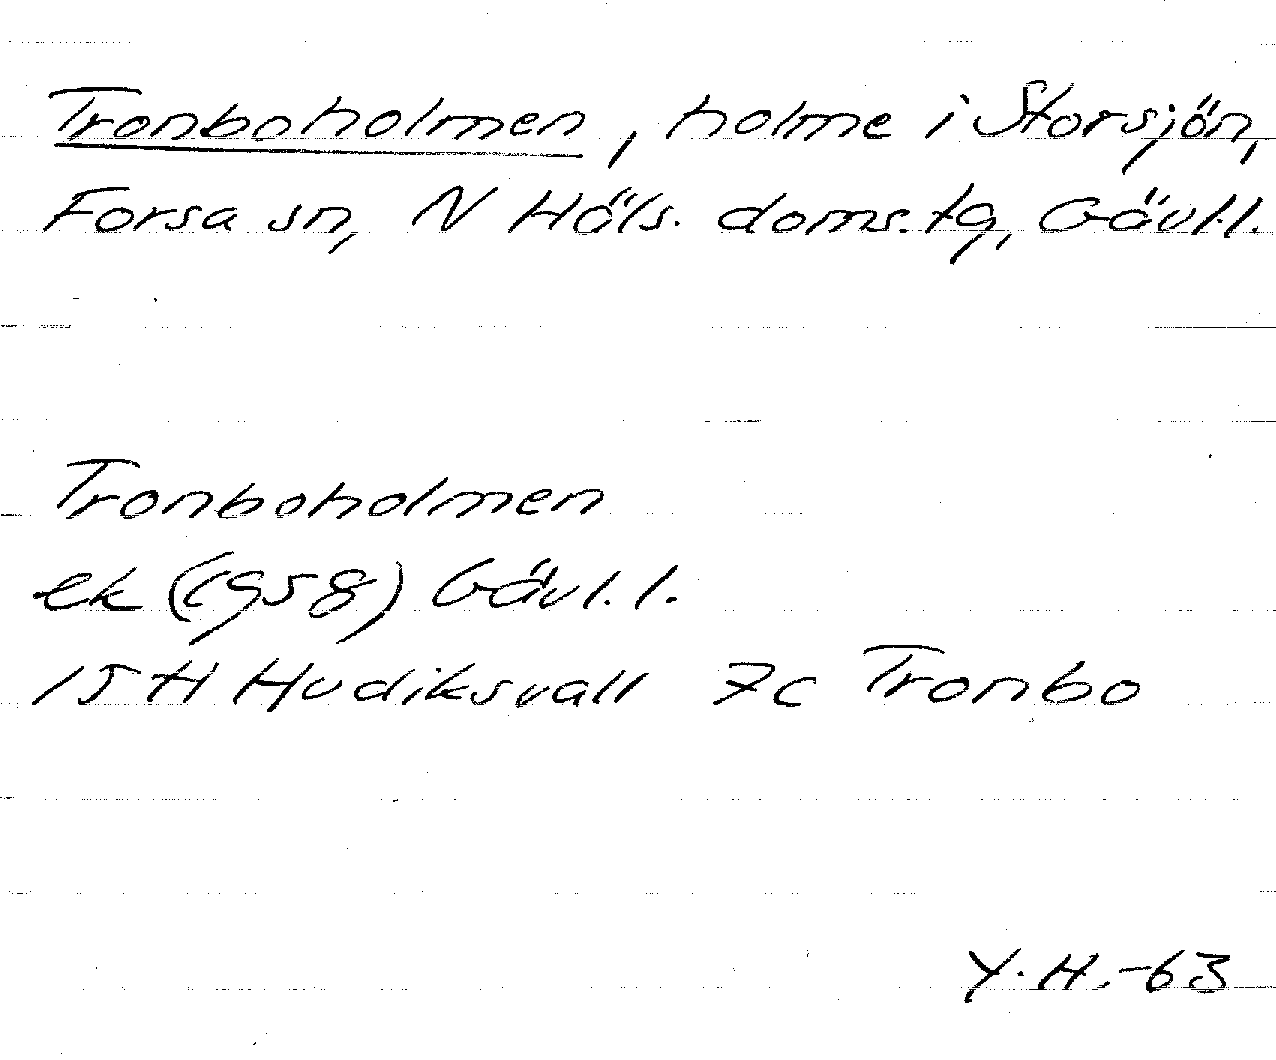 Tronboholmen, holme i Storsjön,
Forsa sn, N Häls. doms.tg, Gävl.l.
Tronboholmen
ek (1958) Gävl.l.
15H Hudiksvall 7c Tronbo
Y.H.-63